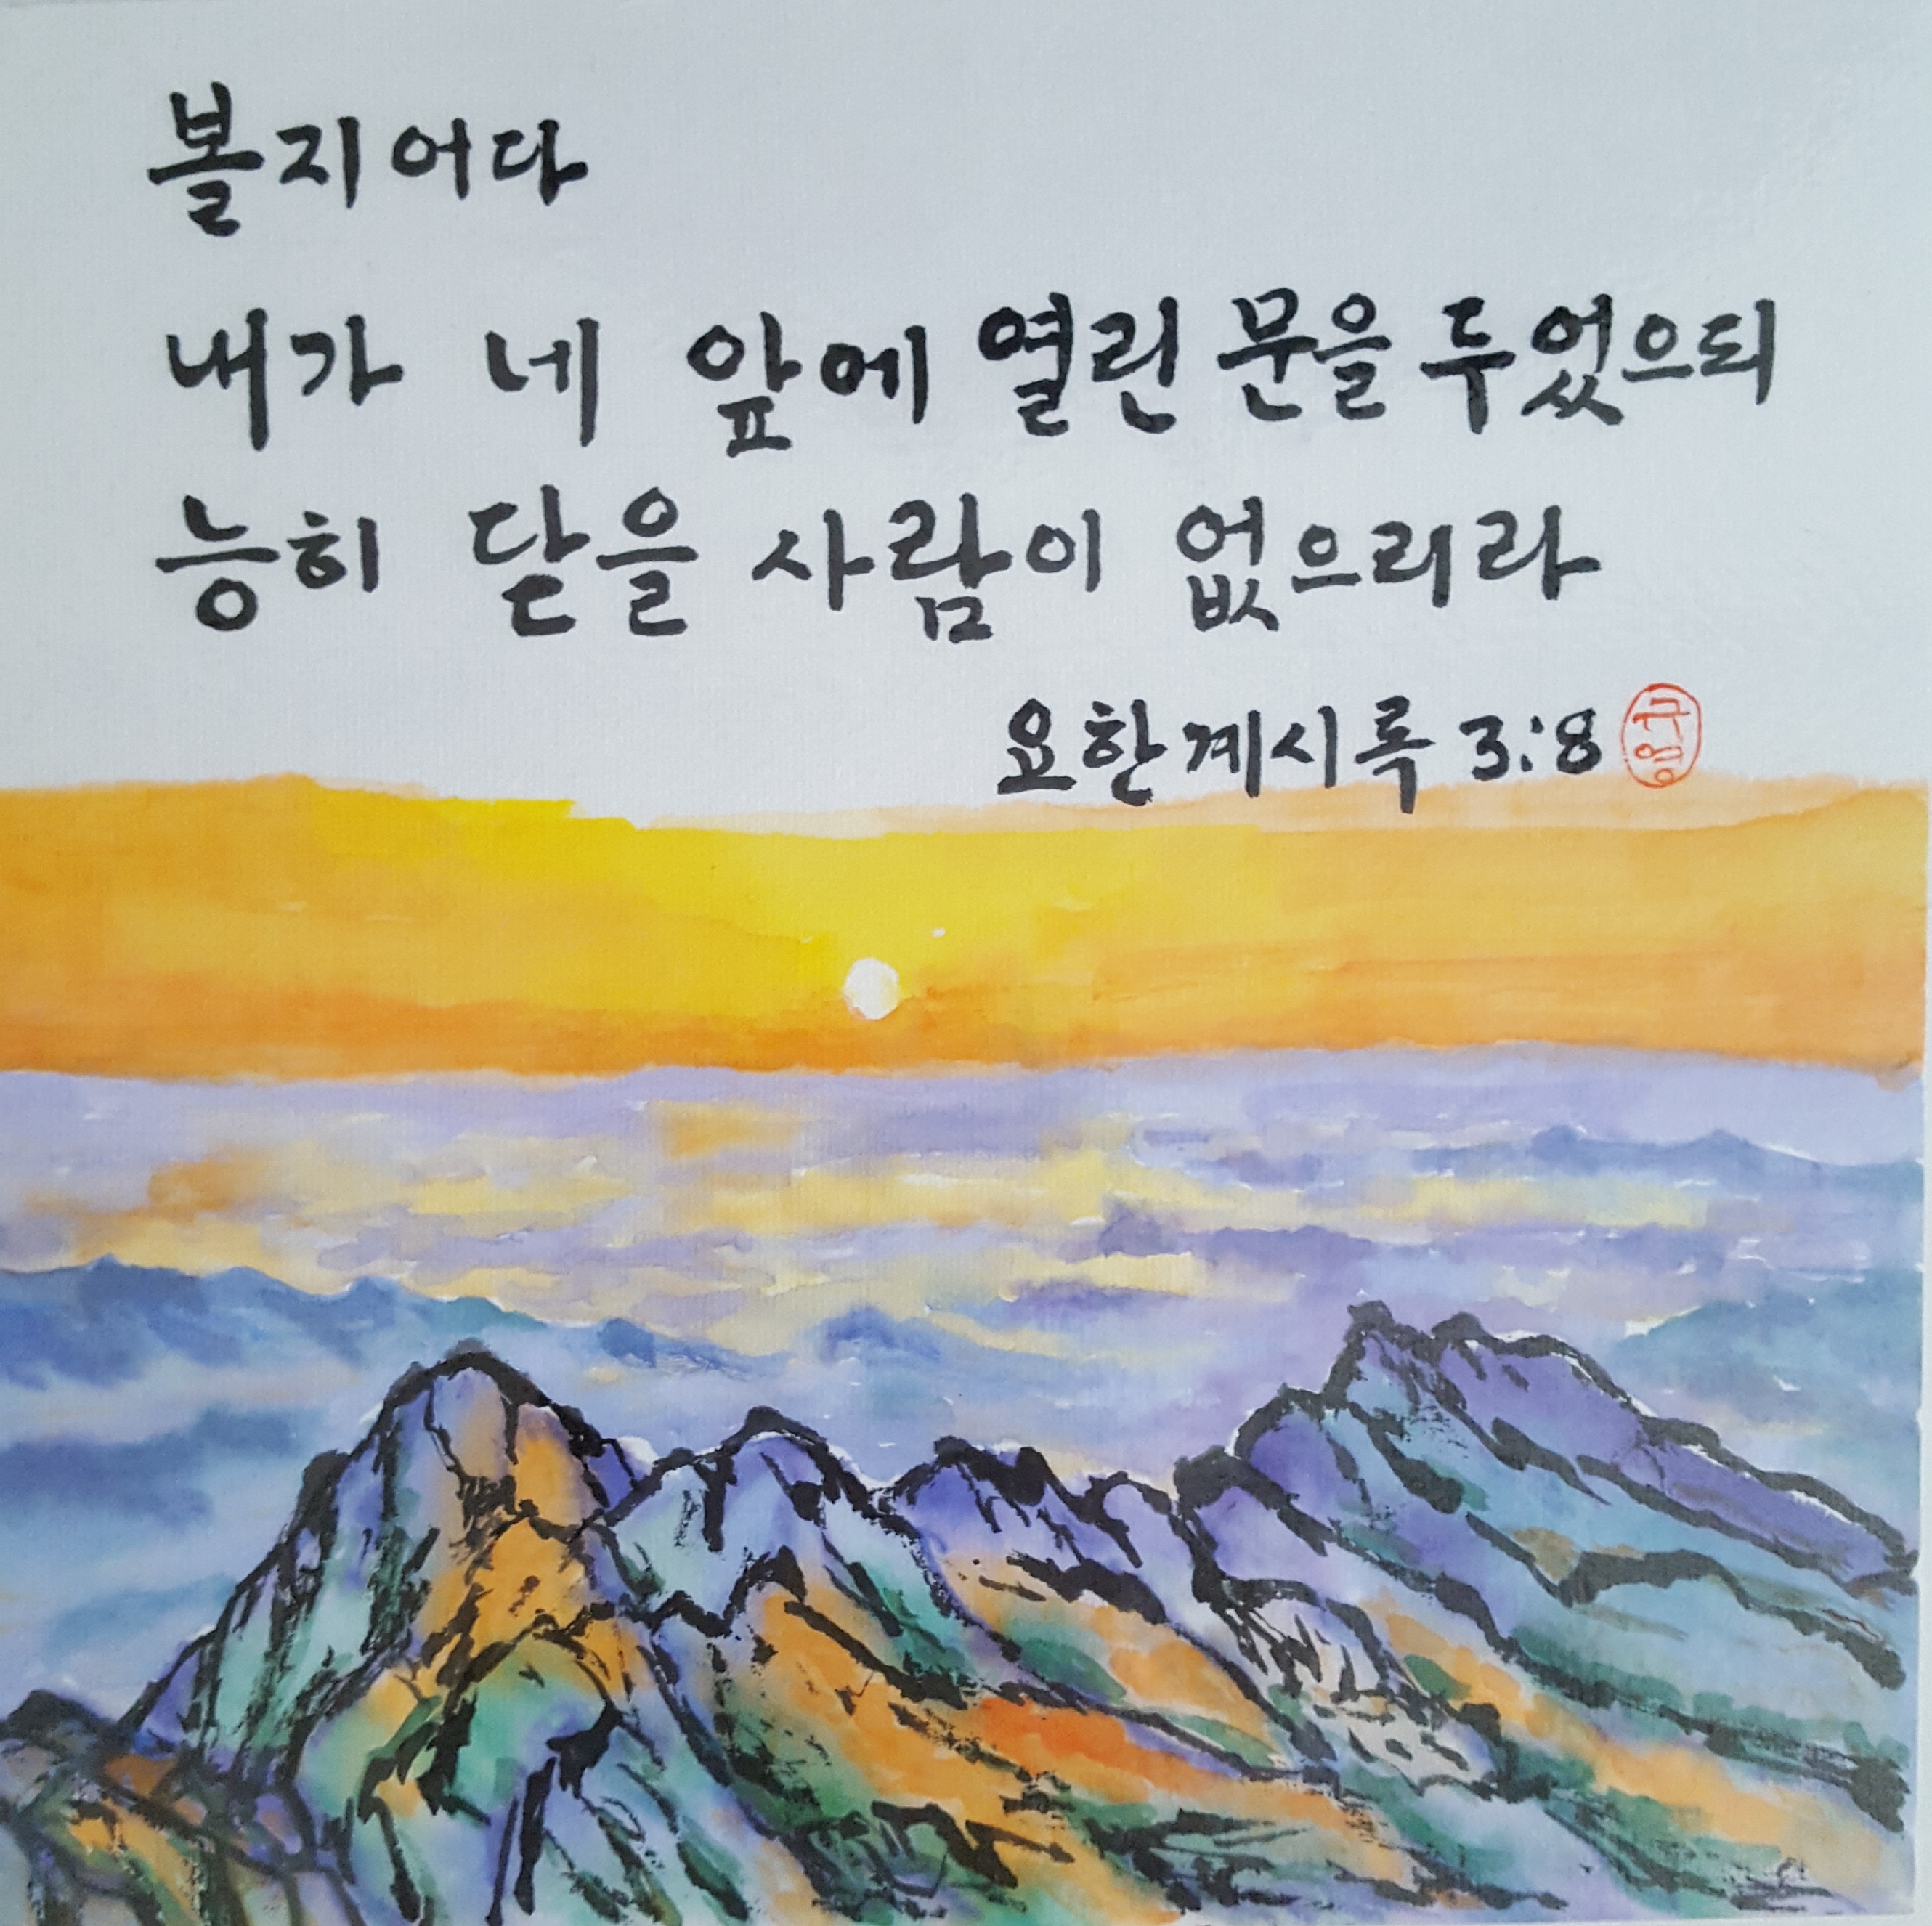 볼지어다
내가 네 앞에 열린 문을 두었으되
능히 닫을 사람이 없으리라
요한계시록 3:8